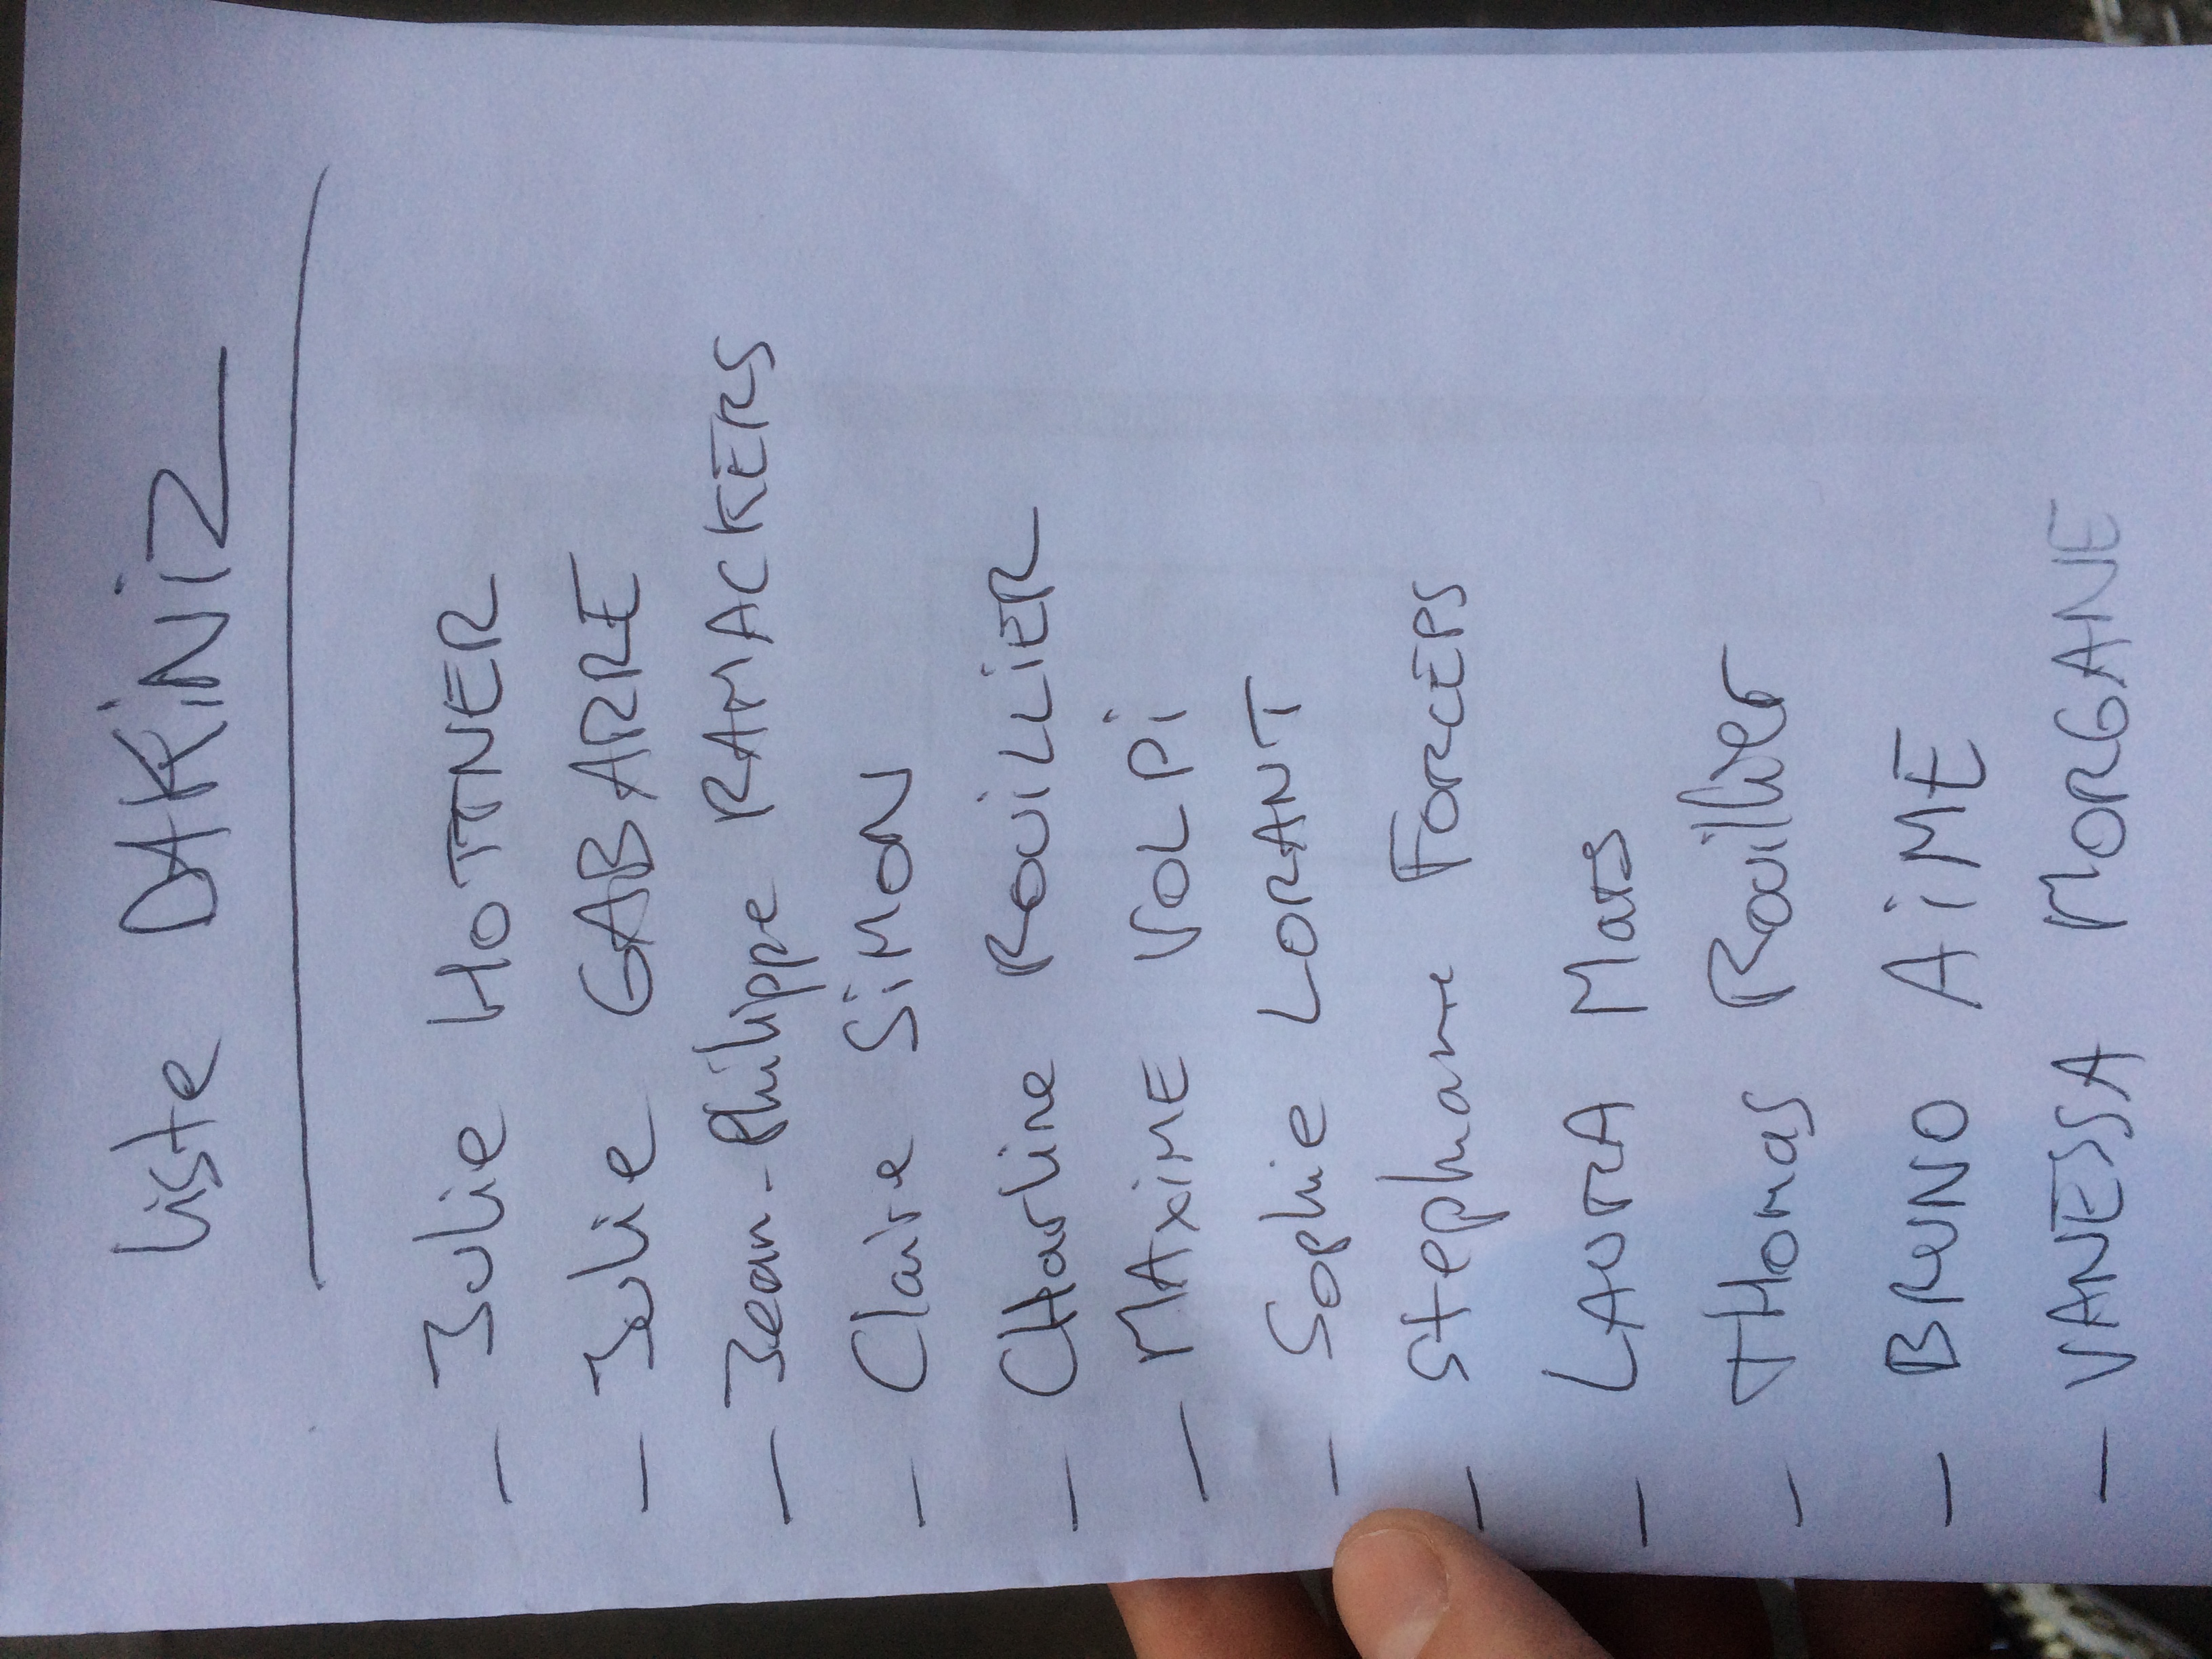 Liste DAKINIZ
- Julie HOTTNER
- Julie GABARRE
- Jean-Philippe RAMACKERS
- Claire SIMON
- CHarline ROUILLIER
- MAXIME VOLPI
- Sophie LORANT
- Stephanie FORCEPS
- LAURA Mars
- tHomas Rouillier
- BRUNO AIME
- VANESSA MORGANE